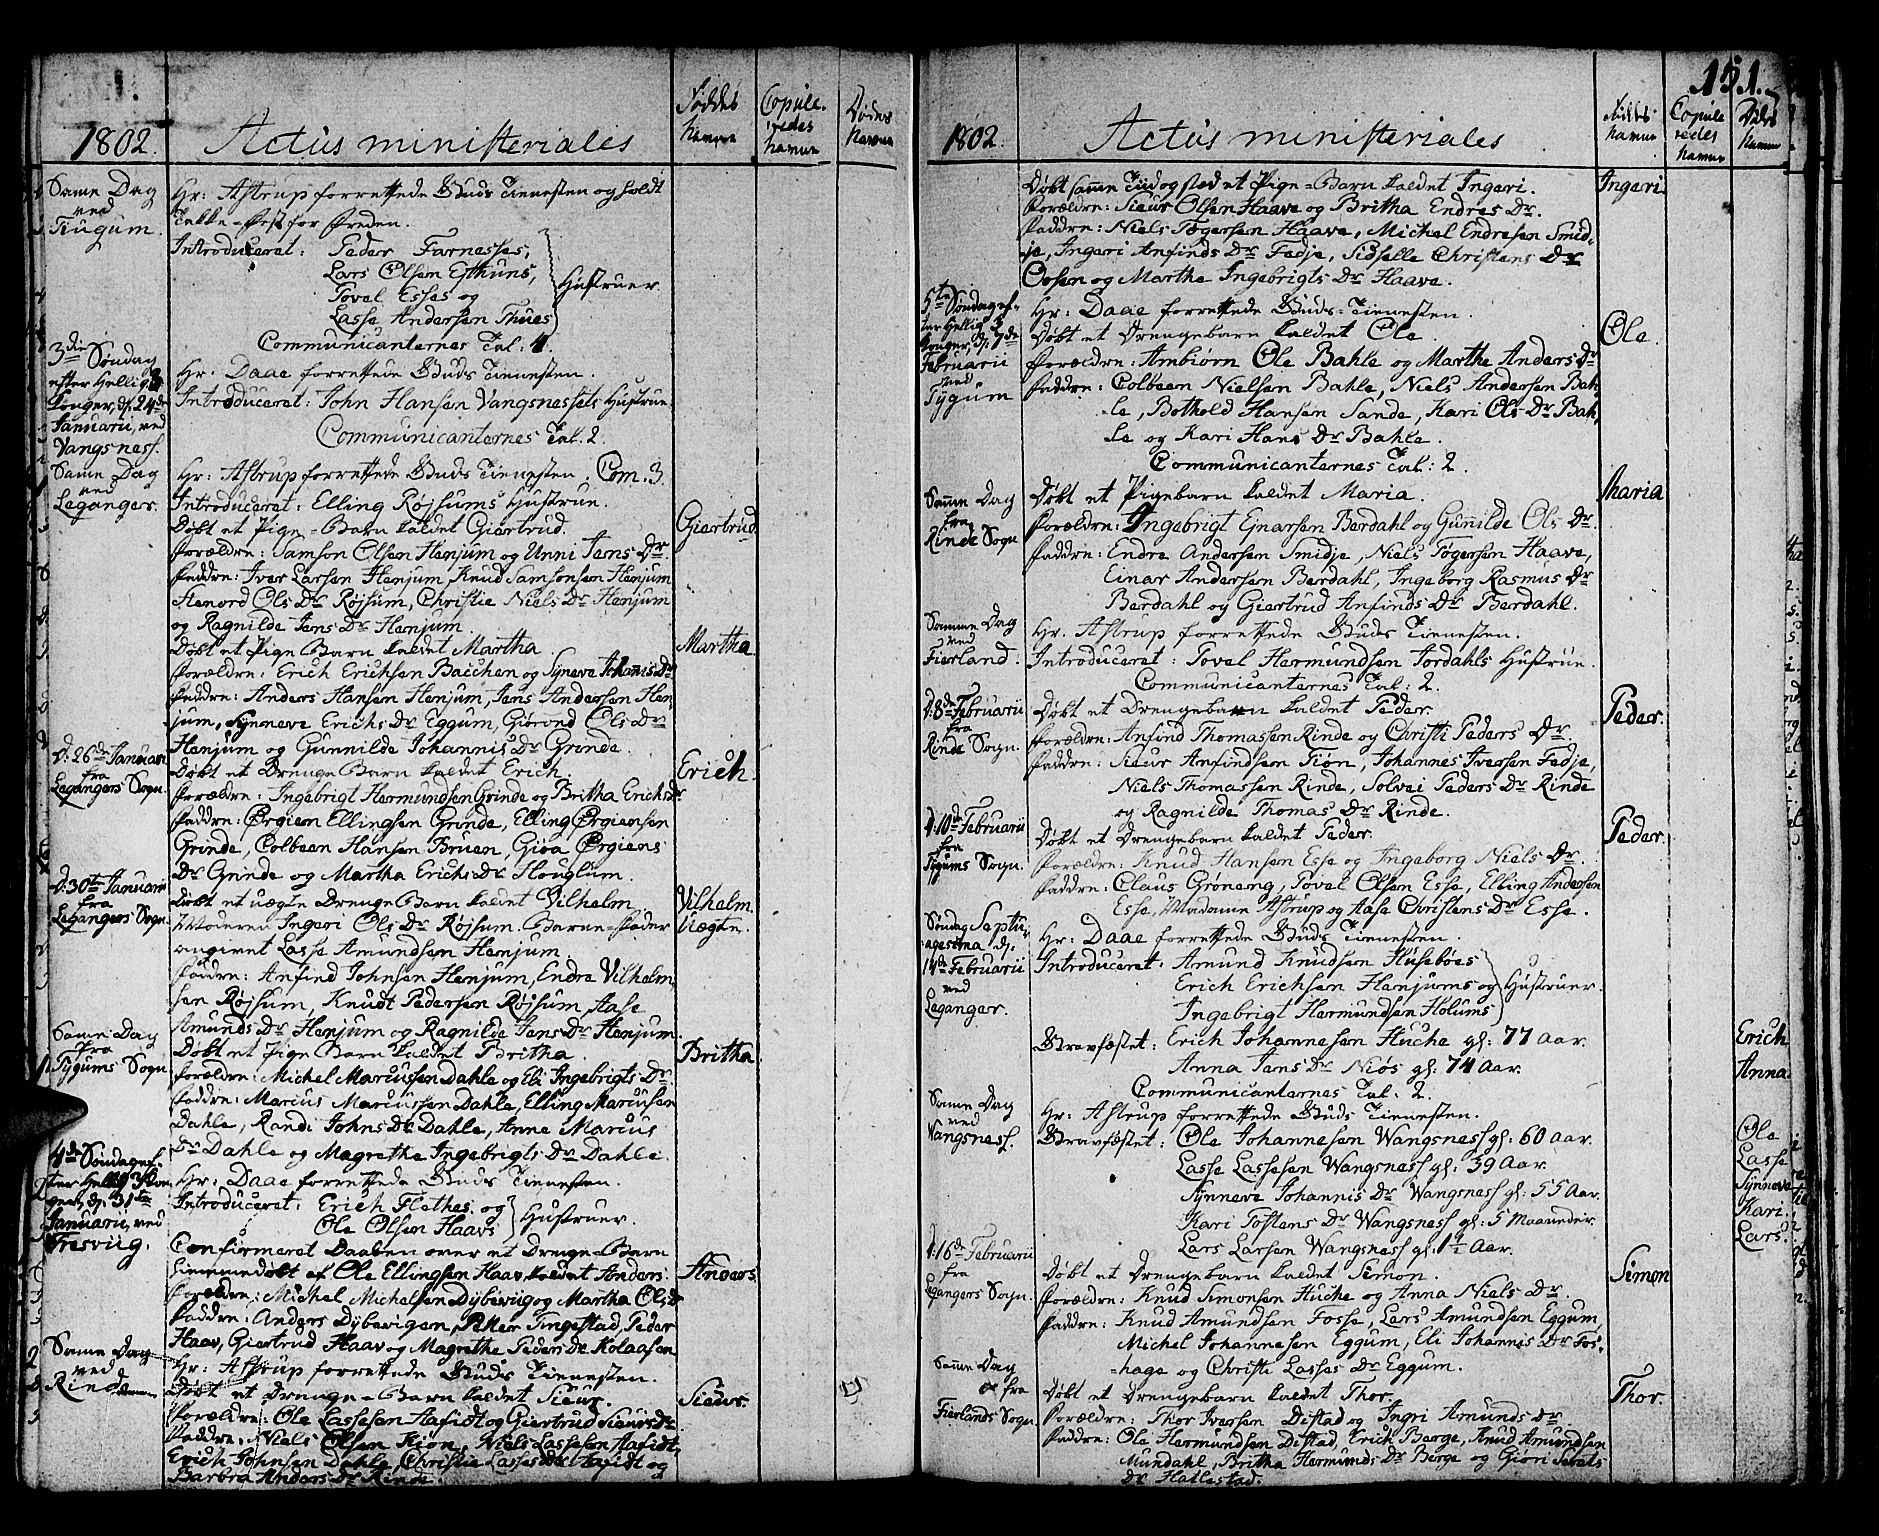 1802.
Actus ministeriales
Føddes Navne
Copuleredes Navne
Dødes Navne
Same Dag
ved
Tiugum.
Hr: Astrup forrettede Guds Tienesten og holdt
Takke-Fest for Freden.
Introduceret: Peder Farnesses,
Lars Olsen Esthuns,
Tovel Esses og
Lasse Andersen Thues
Hustruer
Communicanternes Tal: 4.
3die Søndag
efter Hellig 3
Konger, d: 24de
Januarii, ved
Vangsness.
Hr: Daae forrettede Guds Tienesten.
Introduceret: John Hansen Vangsnessets Hustrue
Communicanternes Tal: 2.
Same Dag
ved
Leganger.
Hr: Astrup forrettede Guds Tienesten. Com. 3.
Introduceret: Elling Røjsums Hustrue.
Døbt et Pige-Barn kaldet Giertrud.
Giertrud
Forældre: Samson Olsen Henjum og Unni Jens Dr
Faddre: Iver Larsen Henjum, Knud Samsonsen Henjum
Henord Ols Dr Røjsum, Christie Niels Dr Henjum
og Ragnilde Jens Dr Henjum.
Døbt et Pige Barn kaldet Martha.
Martha.
Forældre: Erich Erichsen Bacchen og Syneve Johannis Dr
Faddre: Anders Hansen Henjum, Jens Andersen Hen
jum, Synneve Erichs Dr Eggum, Giørond Ols Dr
Henjum og Gunnilde Johannis Dr Grinde.
D: 26de Januarii
fra
Legangers Sogn.
Døbt et Drenge Barn kaldet Erich.
Erich.
Forældre: Ingebrigt Hermundsen Grinde og Britha Erichs Dr
Faddre: Ørgien Ellingsen Grinde, Elling Ørgiensen
Grinde, Colbeen Hansen Bruen, Gioa Ørgiens
Dr Grinde og Martha Erichs Dr Houglum.
D: 30te Januarii
fra
Legangers Sogn.
Døbt et uægte Drenge Barn kaldet Vilhelm
Vilhelm.
Uægte.
Moderen Ingeri Ols Dr Røjsum. Barne-Fader
angivet Lasse Amundsen Henjum
Faddre: Anfind Johnsen Henjum, Endre Vilhelm
sen Røjsum, Knudt Pedersen Røjsum, Aase
Amunds Dr Henjum og Ragnilde Jens Dr Henjum.
Same Dag
fra
Tygums Sogn
Døbt et Pige Barn kaldet Britha.
Britha
Forældre: Michel Marcussen Dahle og Eli Ingebrigts Dr
Faddre: Marcus Marcussen Dahle, Elling Marcusen
Dahle, Randi Johns Dr Dahle, Anne Marcus
Dr Dahle og Magrethe Ingebrigts Dr Dahle.
4de Søndag ef-
ter Hellig 3 Kon
ger, d: 31te
Januarii, ved
Fresviig.
Hr: Daae forrettede Guds Tienesten.
Introduceret: Erich Flethes og
Ole Olsen Haavs
Hustruer.
Confirmeret Daaben over et Drenge-Barn
hiemmedøbt af Ole Ellingsen Haav, kaldet Anders
Anders
Forældre: Michel Michelsen Dybeviig og Martha Ols Dr
Faddre: Anders Dybevigen, Petter Tingestad, Peder
Haav, Giertrud Haav og Magrethe Peders Dr Kolaasen
Same Dag
ved
Rinde
Hr: Astrup forrettede Guds Tienesten.
Døbt et Drenge-Barn kaldet Sieur.
Sieur.
Forældre: Ole Lassesen Aafidt og Giertrud Sieurs Dr
Faddre: Niels Olsen Kion, Niels Lassesen Aafidt,
Erich Johnsen Dahle, Christie Lasses Dr Aafidt og
Barbra Anders Dr Rinde.
151.
1802.
Actus ministeriales
Føddes Navne
Copuleredes Navne
Døde Navne
Døbt samme Tiid og sted et Pige-Barn kaldet Ingeri.
Ingeri.
Forældre: Sieur Olsen Haave og Britha Endres Dr.
Faddre: Niels Tøgersen Haave, Michel Endresen Smid-
je, Ingeri Anfinds Dr Fedje, Sidselle Christens Dr
Oosen og Martha Ingebrigts Dr Haave.
5te Søndag ef-
ter Hellig 3
Konger, d: 7de
Februarii
ved
Tygum
Hr: Daae forrettede Guds-Tienesten.
Døbt et Drengebarn kaldet Ole.
Ole.
Forældre: Ambiørn Ole Bahle og Marthe Anders Dr
Faddre: Colbeen Nielsen Bahle, Niels Andersen Bah-
le, Bothold Hansen Sande, Kari Ols Dr Bah-
le og Kari Hans Dr Bahle.
Communicanternes Tal: 2.
Samme Dag
fra
Rinde Sogn
Døbt et Pigebarn kaldet Maria.
Maria
Forældre: Ingebrigt Ejnarsen Berdahl og Gunnilde Ols Dr.
Faddre: Endre Andersen Smidje, Niels Tøgersen Haave,
Einar Andersen Berdahl, Ingeborg Rasmus Dr
Berdahl og Giertrud Anfinds Dr Berdahl.
Samme Dag
ved
Fierland.
Hr: Astrup forrettede Guds Tienesten.
Introduceret: Tovel Hermundsen Jordahls Hustrue.
Communicanternes Tal: 2.
D: 8de Februarii
fra
Rinde Sogn.
Døbt et Drengebarn kaldet Peder.
Peder.
Forældre: Anfind Thomassen Rinde og Christi Peders Dr.
Faddre: Sieur Anfindsen Tion, Johannes Iversen Fedje,
Niels Thomassen Rinde, Solvei Peders Dr Rinde
og Ragnilde Thomas Dr Rinde.
D: 10de Februarii
fra
Tygums Sogn.
Døbt et Drengebarn kaldet Peder.
Peder.
Forældre: Knud Hansen Esse og Ingeborg Niels Dr
Faddre: Claus Grøneng, Tovel Olsen Esse, Elling Andersen
Esse, Madame Astrup og Aase Christens Dr Esse.
Søndag Septu-
agesima d:
14de Februarii
ved
Leganger.
Hr: Daae forrettede Guds Tienesten.
Introduceret: Amund Knudsen Husebøes
Erich Erichsen Henjums og
Ingebrigt Hermundsen Holums
Hustruer.
Gravfæstet: Erich Johannesen Huche gl: 77 Aar.
Erich
Anna Jens Dr Niøs gl: 74 Aar.
Anna.
Communicanternes Tal: 2.
Same Dag
ved
Vangsness.
Hr: Astrup forrettede Guds Tienesten.
Gravfæstet: Ole Johannesen Wangsness gl: 60 Aar.
Ole
Lasse Lassesen Wangsness gl: 39 Aar.
Lasse
Synneve Johannis Dr Wangsness gl: 55 Aar.
Synneve
Kari Tostens Dr Wangsness gl: 5 Maaneder.
Kari.
Lars Larsen Wangsness gl: 1½ Aar.
Lars.
D: 16de Februarii
fra
Legangers Sogn.
Døbt et Drengebarn kaldet Simon.
Simon
Forældre: Knud Simonsen Huche og Anna Niels Dr.
Faddre: Knud Amundsen Fosse, Lars Amundsen Eggum,
Michel Johannesen Eggum, Eli Johannis Dr Fos-
hage og Christi Lasses Dr Eggum.
Samme Dag
fra
Fierlands Sogn
Døbt et Drengebarn kaldet Thor.
Thor.
Forældre: Thor Iversen Distad og Ingri Amunds Dr
Faddre: Ole Hermundsen Distad, Erich Berge, Knud Amundsen
Mundahl, Britha Hermunds Dr Berge og Giøri Siverts
Dr Hatlestad.